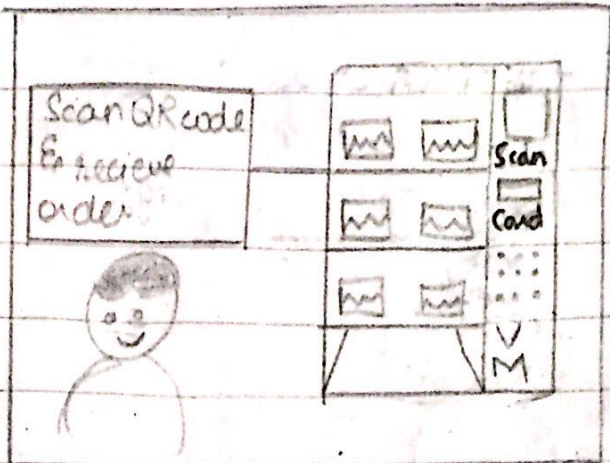 Scan QR code
& recieve
order
Scan
Card
V
M